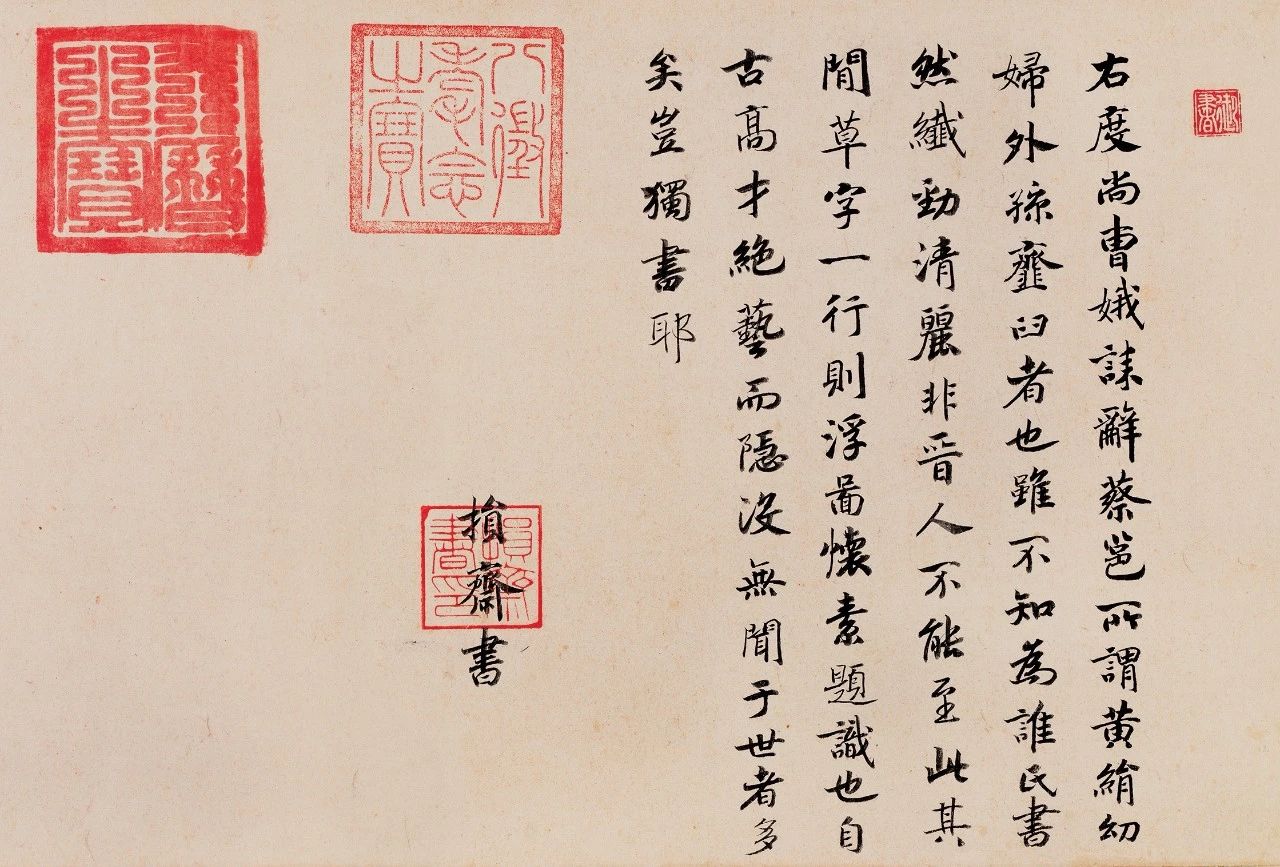 御書
右度尚曹娥誄辭蔡邕所謂黃絹幼
婦外孫虀臼者也雖不知為誰氏書
然纖勁清麗非晉人不能至此其
閒草字一行則浮啚懷素題識也自
古高才絕藝而隱沒無聞于世者多
矣豈獨書耶
損齋書
損齋書印
八徵耄念之寶